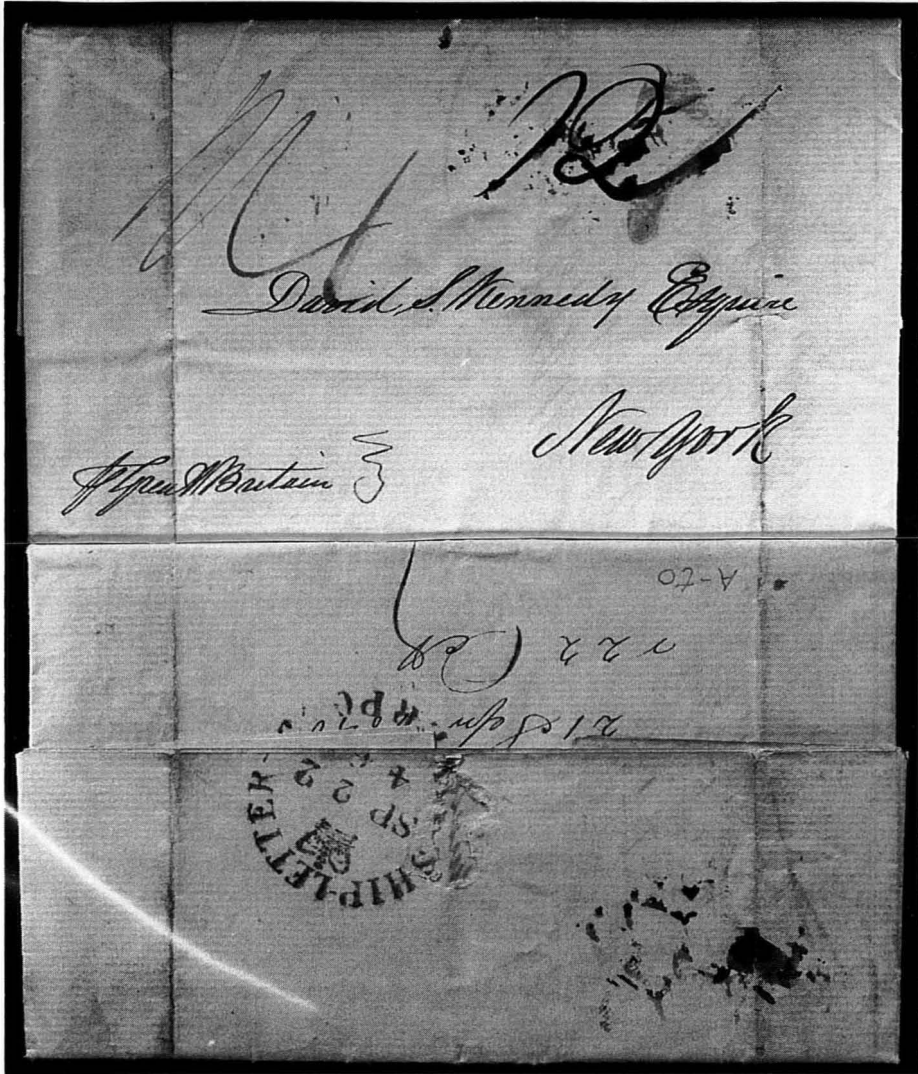 12
David S. Kennedy Esquire
New York
Great Britain
A-to
22 Oct
21 Sep
SHIP-LETTER
SP 22